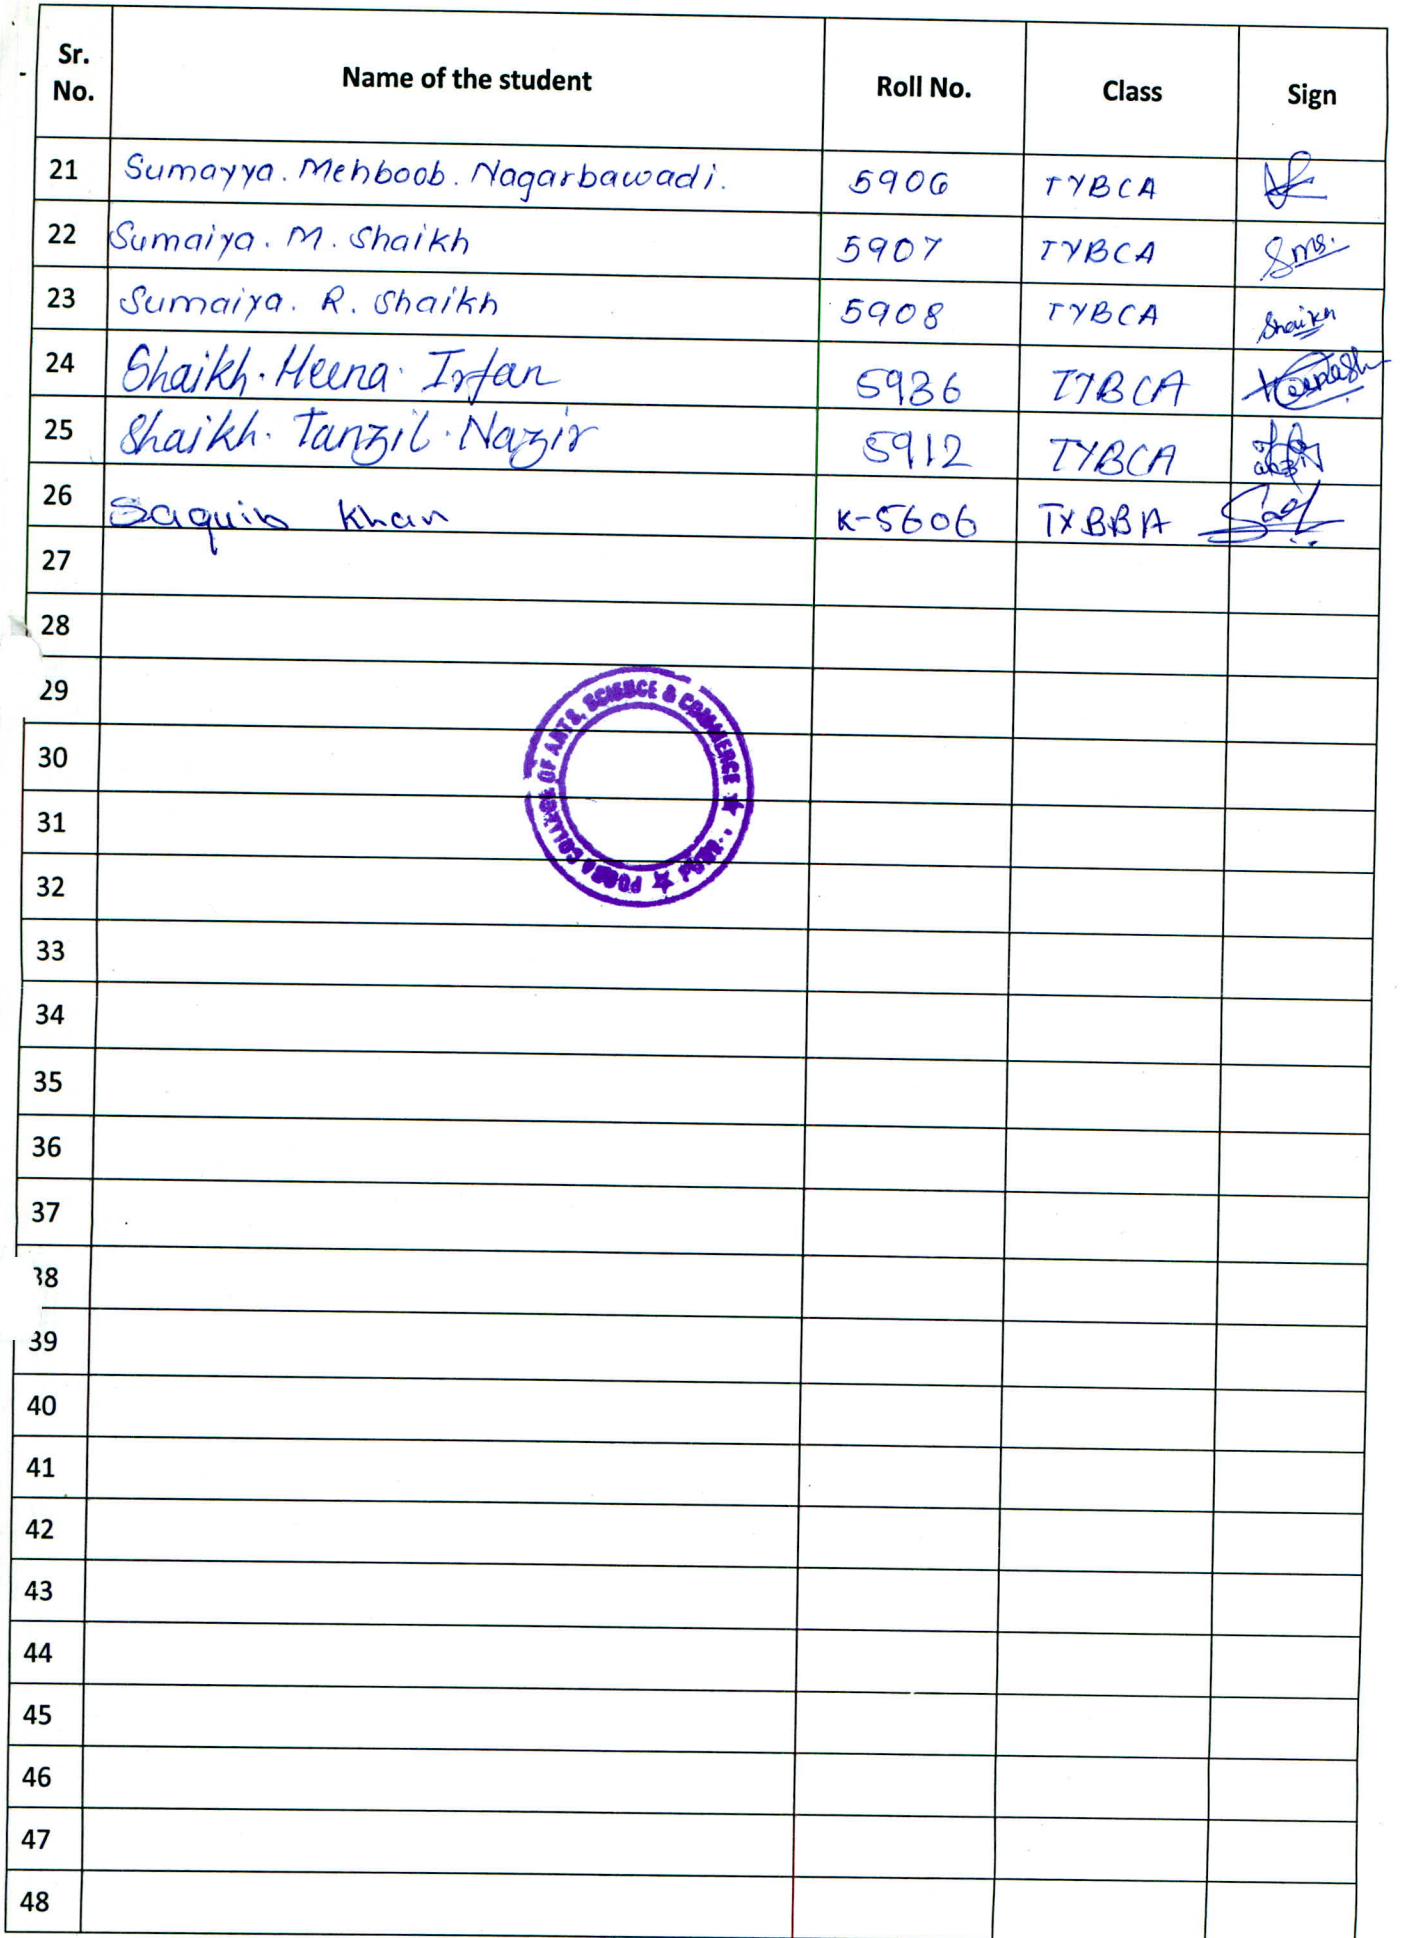 Sr. No. Name of the student Roll No. Class Sign
21 Sumayya. Mehboob. Nagarbawadi. 5906 TYBCA
22 Sumaiya. M. Shaikh 5907 TYBCA Sms.
23 Sumaiya. R. Shaikh 5908 TYBCA Shaikh
24 Shaikh. Heena. Irfan 5936 TYBCA
25 Shaikh. Tanzil. Nazir 5912 TYBCA
26 Saquib Khan K-5606 TYBBA
27
28
29
30
31
32
33
34
35
36
37
38
39
40
41
42
43
44
45
46
47
48
POONA COLLEGE OF ARTS, SCIENCE & COMMERCE ★ ★